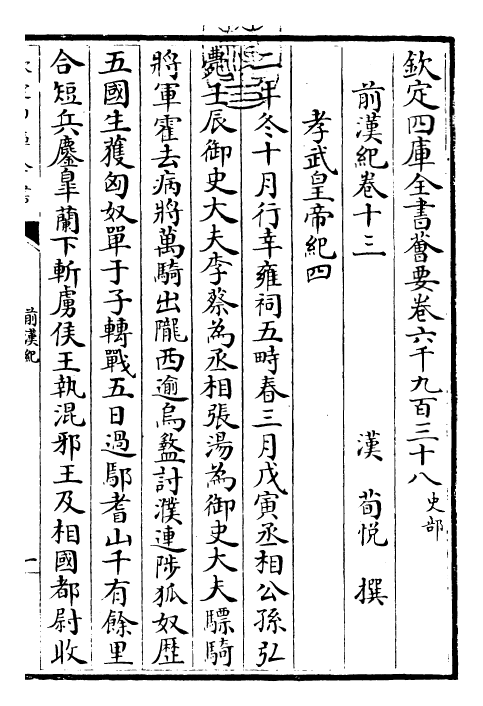 欽定四庫全書薈要卷六千九百三十八史部
前漢紀卷十三　漢　荀悅　撰
孝武皇帝紀四
二年冬十月行幸雍祠五畤春三月戊寅丞相公孫弘
薨壬辰御史大夫李蔡為丞相張湯為御史大夫驃騎
將軍霍去病將萬騎出隴西逾烏盭討濮連陟狐奴歷
五國生獲匈奴單于子轉戰五日過鄢耆山千有餘里
合短兵鏖皐蘭下斬虜侯王執混邪王及相國都尉收
前漢紀
一